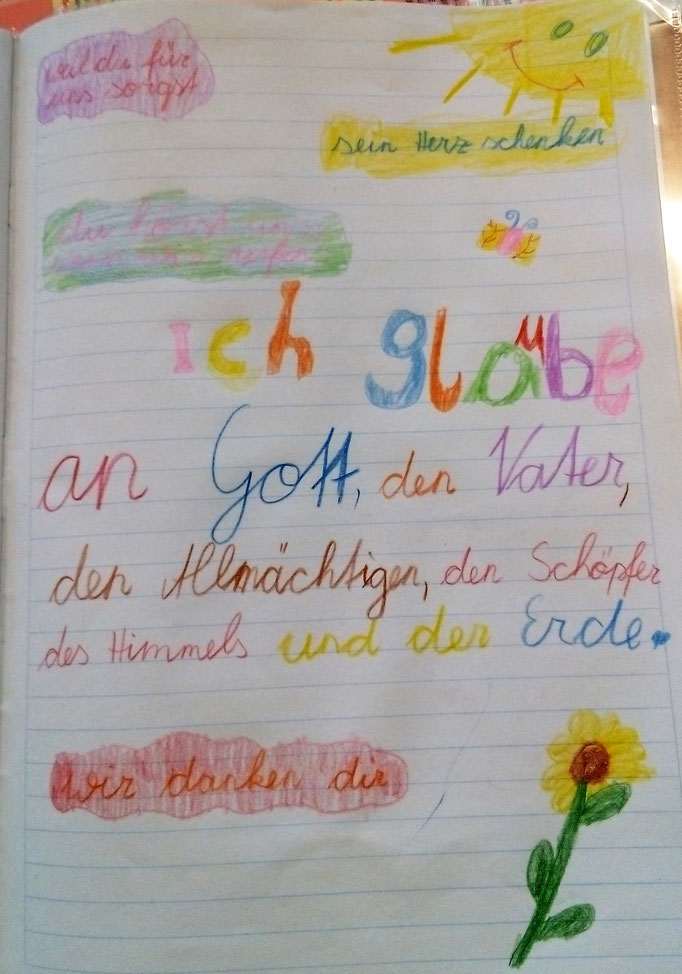 weil du für
uns sorgst
sein Herz schenken
du hörst uns
wenn wir rufen
ich glaube
an Gott, den Vater,
den Allmächtigen, den Schöpfer
des Himmels und der Erde.
wir danken dir